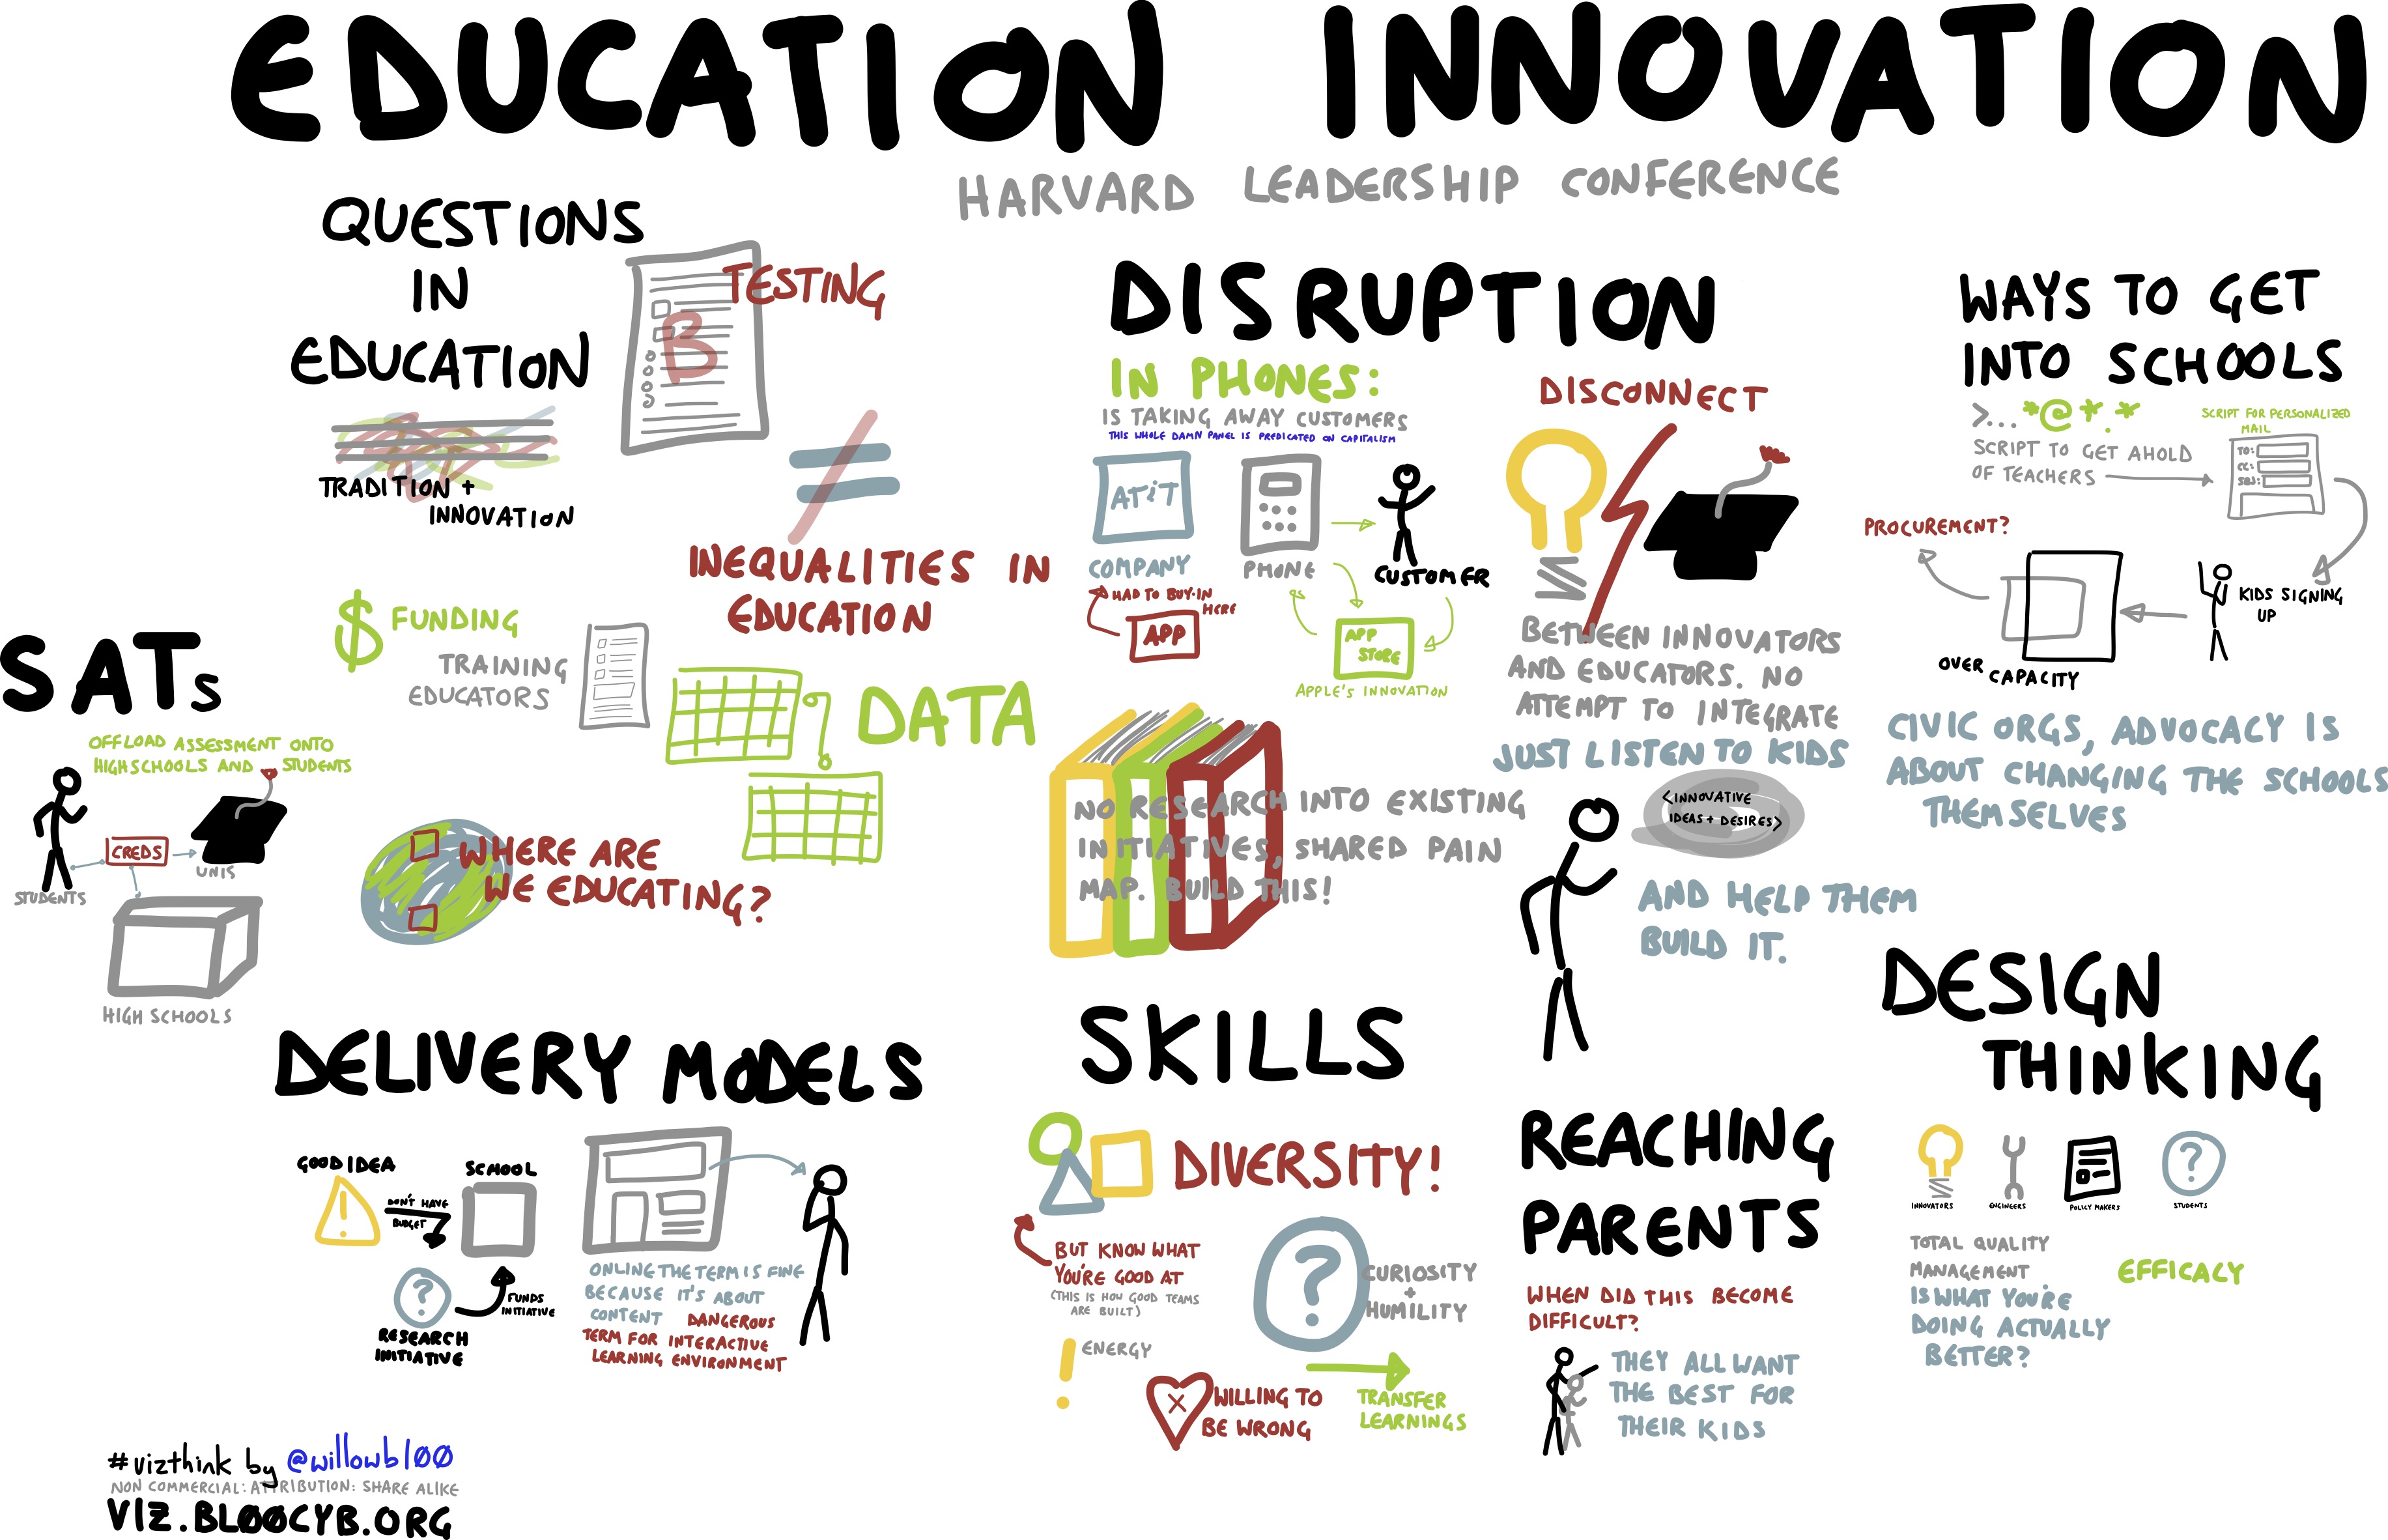 EDUCATION INNOVATION
HARVARD LEADERSHIP CONFERENCE
QUESTIONS
IN
EDUCATION
TRADITION +
INNOVATION
TESTING
B
INEQUALITIES IN
EDUCATION
$ FUNDING
TRAINING
EDUCATORS
DATA
WHERE ARE
WE EDUCATING?
SATs
OFFLOAD ASSESSMENT ONTO
HIGHSCHOOLS AND STUDENTS
CREDS
UNIS
STUDENTS
HIGH SCHOOLS
DISRUPTION
IN PHONES:
IS TAKING AWAY CUSTOMERS
THIS WHOLE DAMN PANEL IS PREDICATED ON CAPITALISM
AT&T
COMPANY
PHONE
CUSTOMER
HAD TO BUY-IN
HERE
APP
APP
STORE
APPLE'S INNOVATION
NO RESEARCH INTO EXISTING
INITIATIVES, SHARED PAIN
MAP. BUILD THIS!
DISCONNECT
BETWEEN INNOVATORS
AND EDUCATORS. NO
ATTEMPT TO INTEGRATE
JUST LISTEN TO KIDS
<INNOVATIVE
IDEAS + DESIRES>
AND HELP THEM
BUILD IT.
WAYS TO GET
INTO SCHOOLS
>... *@*.*
SCRIPT TO GET AHOLD
OF TEACHERS
SCRIPT FOR PERSONALIZED
MAIL
TO:
CC:
SBJ:
PROCUREMENT?
KIDS SIGNING
UP
OVER CAPACITY
CIVIC ORGS, ADVOCACY IS
ABOUT CHANGING THE SCHOOLS
THEMSELVES
DELIVERY MODELS
GOOD IDEA
!
DON'T HAVE
BUDGET
SCHOOL
?
FUNDS
INITIATIVE
RESEARCH
INITIATIVE
ONLINE THE TERM IS FINE
BECAUSE IT'S ABOUT
CONTENT DANGEROUS
TERM FOR INTERACTIVE
LEARNING ENVIRONMENT
SKILLS
DIVERSITY!
BUT KNOW WHAT
YOU'RE GOOD AT
(THIS IS HOW GOOD TEAMS
ARE BUILT)
?
CURIOSITY
+
HUMILITY
! ENERGY
X
WILLING TO
BE WRONG
TRANSFER
LEARNINGS
REACHING
PARENTS
WHEN DID THIS BECOME
DIFFICULT?
THEY ALL WANT
THE BEST FOR
THEIR KIDS
DESIGN
THINKING
?
INNOVATORS
ENGINEERS
POLICY MAKERS
STUDENTS
TOTAL QUALITY
MANAGEMENT.
IS WHAT YOU'RE
DOING ACTUALLY
BETTER?
EFFICACY
#vizthink by @willowbl00
NON COMMERCIAL: ATTRIBUTION: SHARE ALIKE
VIZ.BL00CYB.ORG